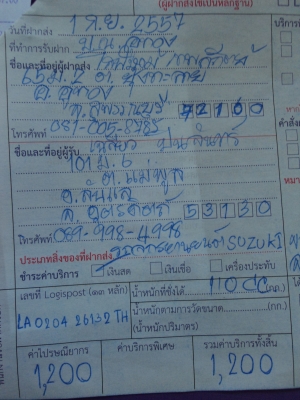 (ผู้ฝากส่งเก็บไว้เป็นหลักฐาน)
วันที่ฝากส่ง 1 ก.ย. 2557
ที่ทำการรับฝาก ปณ.อู่ทอง
ชื่อและที่อยู่ผู้ฝากส่ง
65 ม.2 ต.
อ. อู่ทอง
จ. สุพรรณบุรี 72160
โทรศัพท์ 087-005-8785
ชื่อและที่อยู่ผู้รับ
101 ม.6
ต. แม่พูล
อ. ลับแล
จ. อุตรดิตถ์ 53130
โทรศัพท์ 089-998-4998
ประเภทสิ่งของที่ฝากส่ง รถจักรยานยนต์ SUZUKI
ชำระค่าบริการ เงินสด เงินเชื่อ เครื่องประทับ
เลขที่ Logispost (๑๓ หลัก) น้ำหนักที่ชั่งได้ 110CC (กก.)
LA 0204 26132 TH น้ำหนักตามการวัดขนาด (กก.)
(น้ำหนักปริมาตร)
ค่าไปรษณียากร ค่าบริการพิเศษ รวมค่าบริการทั้งสิ้น
1,200 1,200